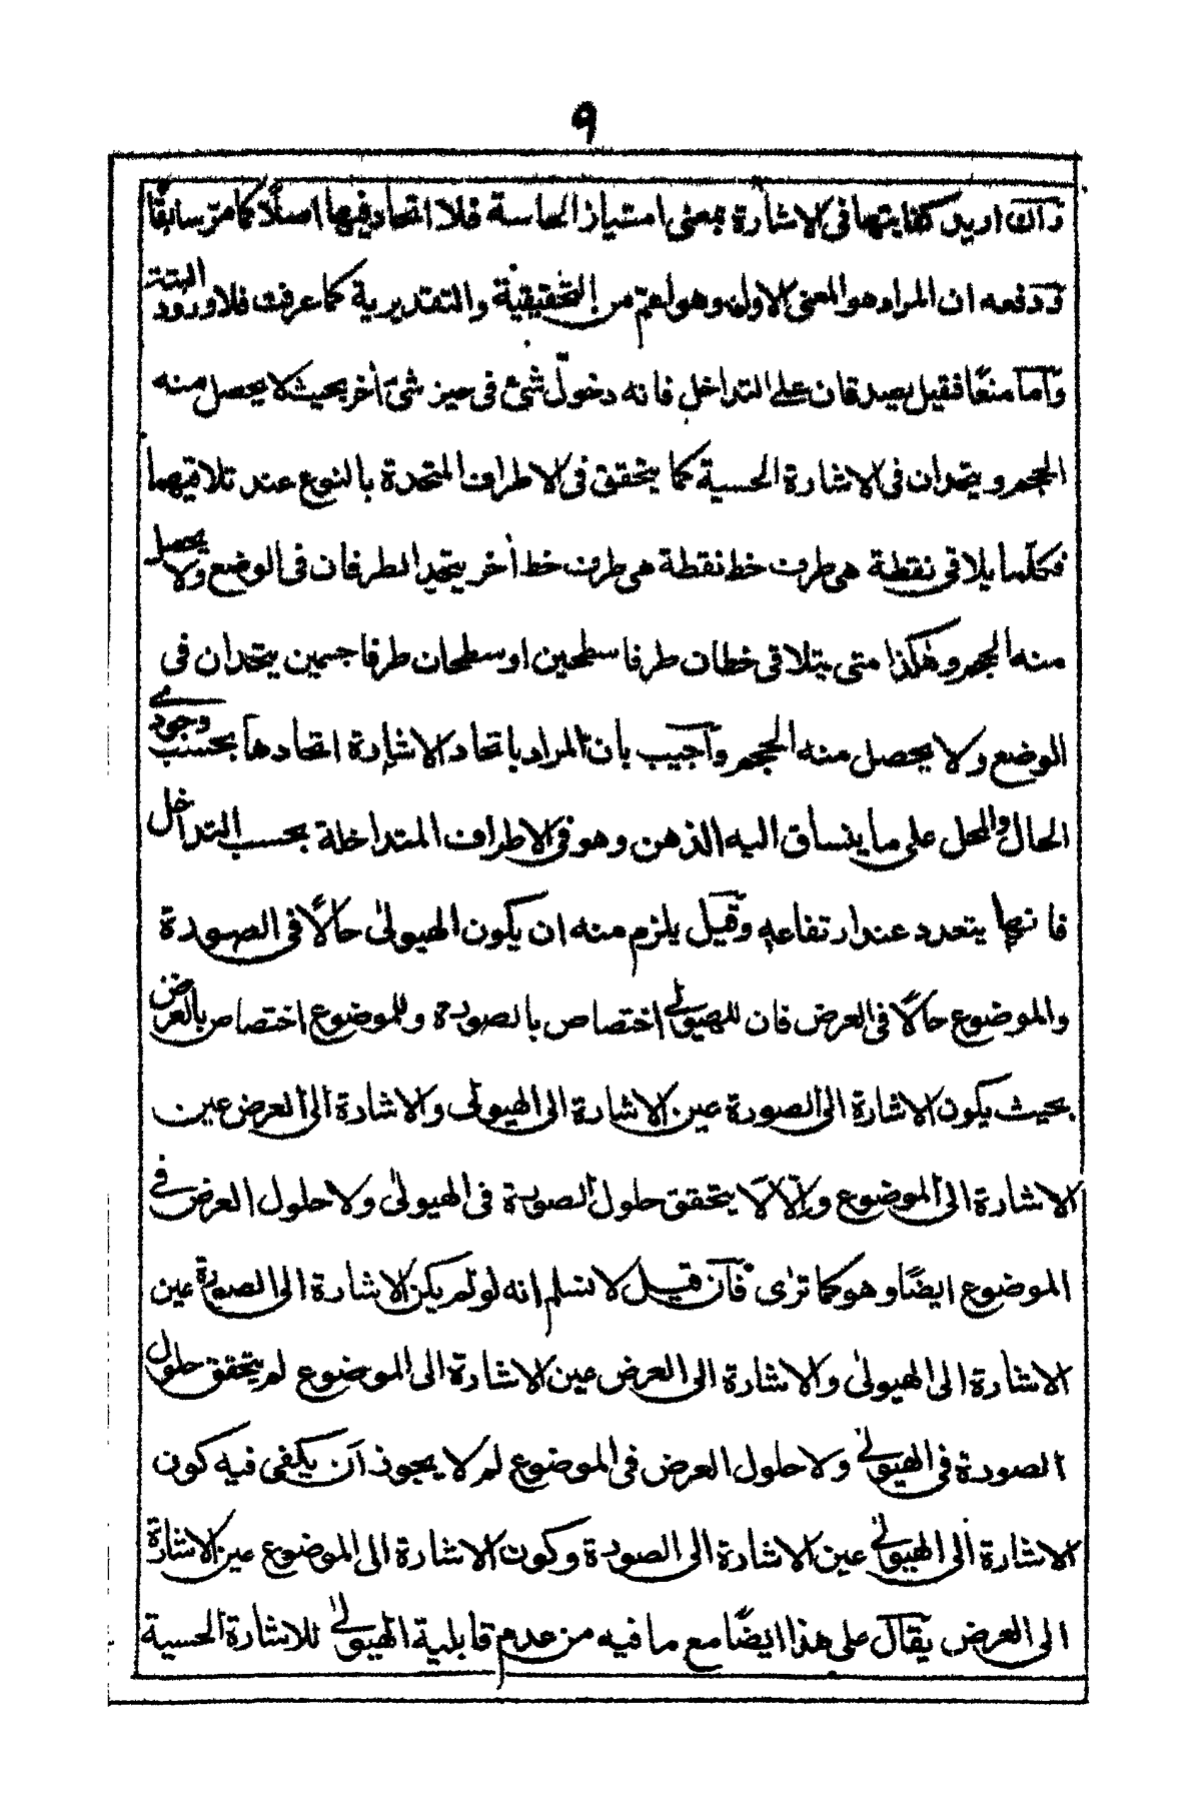 ٩
وان اريد كفايتها فى الاشارة بمعنى امتياز الحاسة فلا اتحاد فيها اصلًا كما مرّ سابقًا
ودفعه ان المراد هو المعنى الاول وهو اعم من التحقيقية والتقديرية كما عرفت فلا ورود البتة
وآما منعًا فقيل يصدقان على التداخل فانه دخول شئ فى حيز شئ أخر بحيث لا يحصل منه
الحجم ويتحدان فى الاشارة الحسية كما يتحقق فى الاطراف المتحدة بالنوع عند تلاقيهما
فكلّما يلاقى نقطة هى طرف خط نقطة هى طرف خط أخر يتحد الطرفان فى الوضع ولا يحصل
منه الحجم وهٰكذا متى يتلاقى خطان طرفا سطحين او سطحان طرفا جسمين يتحدان فى
الوضع ولا يحصل منه الحجم وآجيب بان المراد باتحاد الاشارة اتحادها بحسب وجودى
الحال والمحل على ما ينساق اليه الذهن وهو فى الاطراف المتداخلة بحسب التداخل
فانها يتعدد عند ارتفاعه وقيل يلزم منه ان يكون الهيولىٰ حالًا فى الصورة
والموضوع حالًا فى العرض فان للهيولىٰ اختصاص بالصورة وللموضوع اختصاص بالعرض
بحيث يكون الاشارة الى الصورة عين الاشارة الى الهيولى والاشارة الى العرض عين
الاشارة الى الموضوع والّا لا يتحقق حلول الصورة فى الهيولىٰ ولا حلول العرض فى
الموضوع ايضًا وهو كما ترٰى فآن قيل لا نسلم انه لو لم يكن الاشارة الى الصورة عين
الاشارة الى الهيولىٰ والاشارة الى العرض عين الاشارة الى الموضوع لم يتحقق حلول
الصورة فى الهيولىٰ ولا حلول العرض فى الموضوع لم لا يجوز ان يكفى فيه كون
الاشارة الى الهيولىٰ عين الاشارة الى الصورة وكون الاشارة الى الموضوع عين الاشارة
الى العرض يقال على هذا ايضًا مع ما فيه من عدم قابلية الهيولىٰ للاشارة الحسية